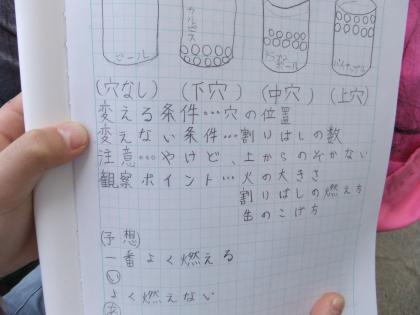 ビール
カルピス
(穴なし) (下穴) (中穴) (上穴)
変える条件…穴の位置
変えない条件…割りばしの数
注意…やけど、上からのぞかない
観察ポイント…火の大きさ
割りばしの燃え方
缶のこげ方
(予想)
一番よく燃える
い
よく燃えない